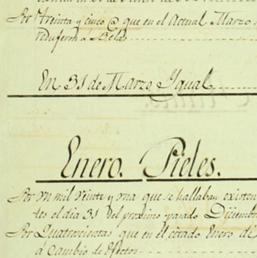 Por treinta y cinco @ que en el Actual Marzo
redugeron a Pieles
En 31 de Marzo Ygual
Enero. Pieles.
Por un mil veinte y una que se hallaban existen
tes el dia 31 del proximo pasado Diciembr
Por Quatrocientas que en el citado Enero de
a cambio de efectos